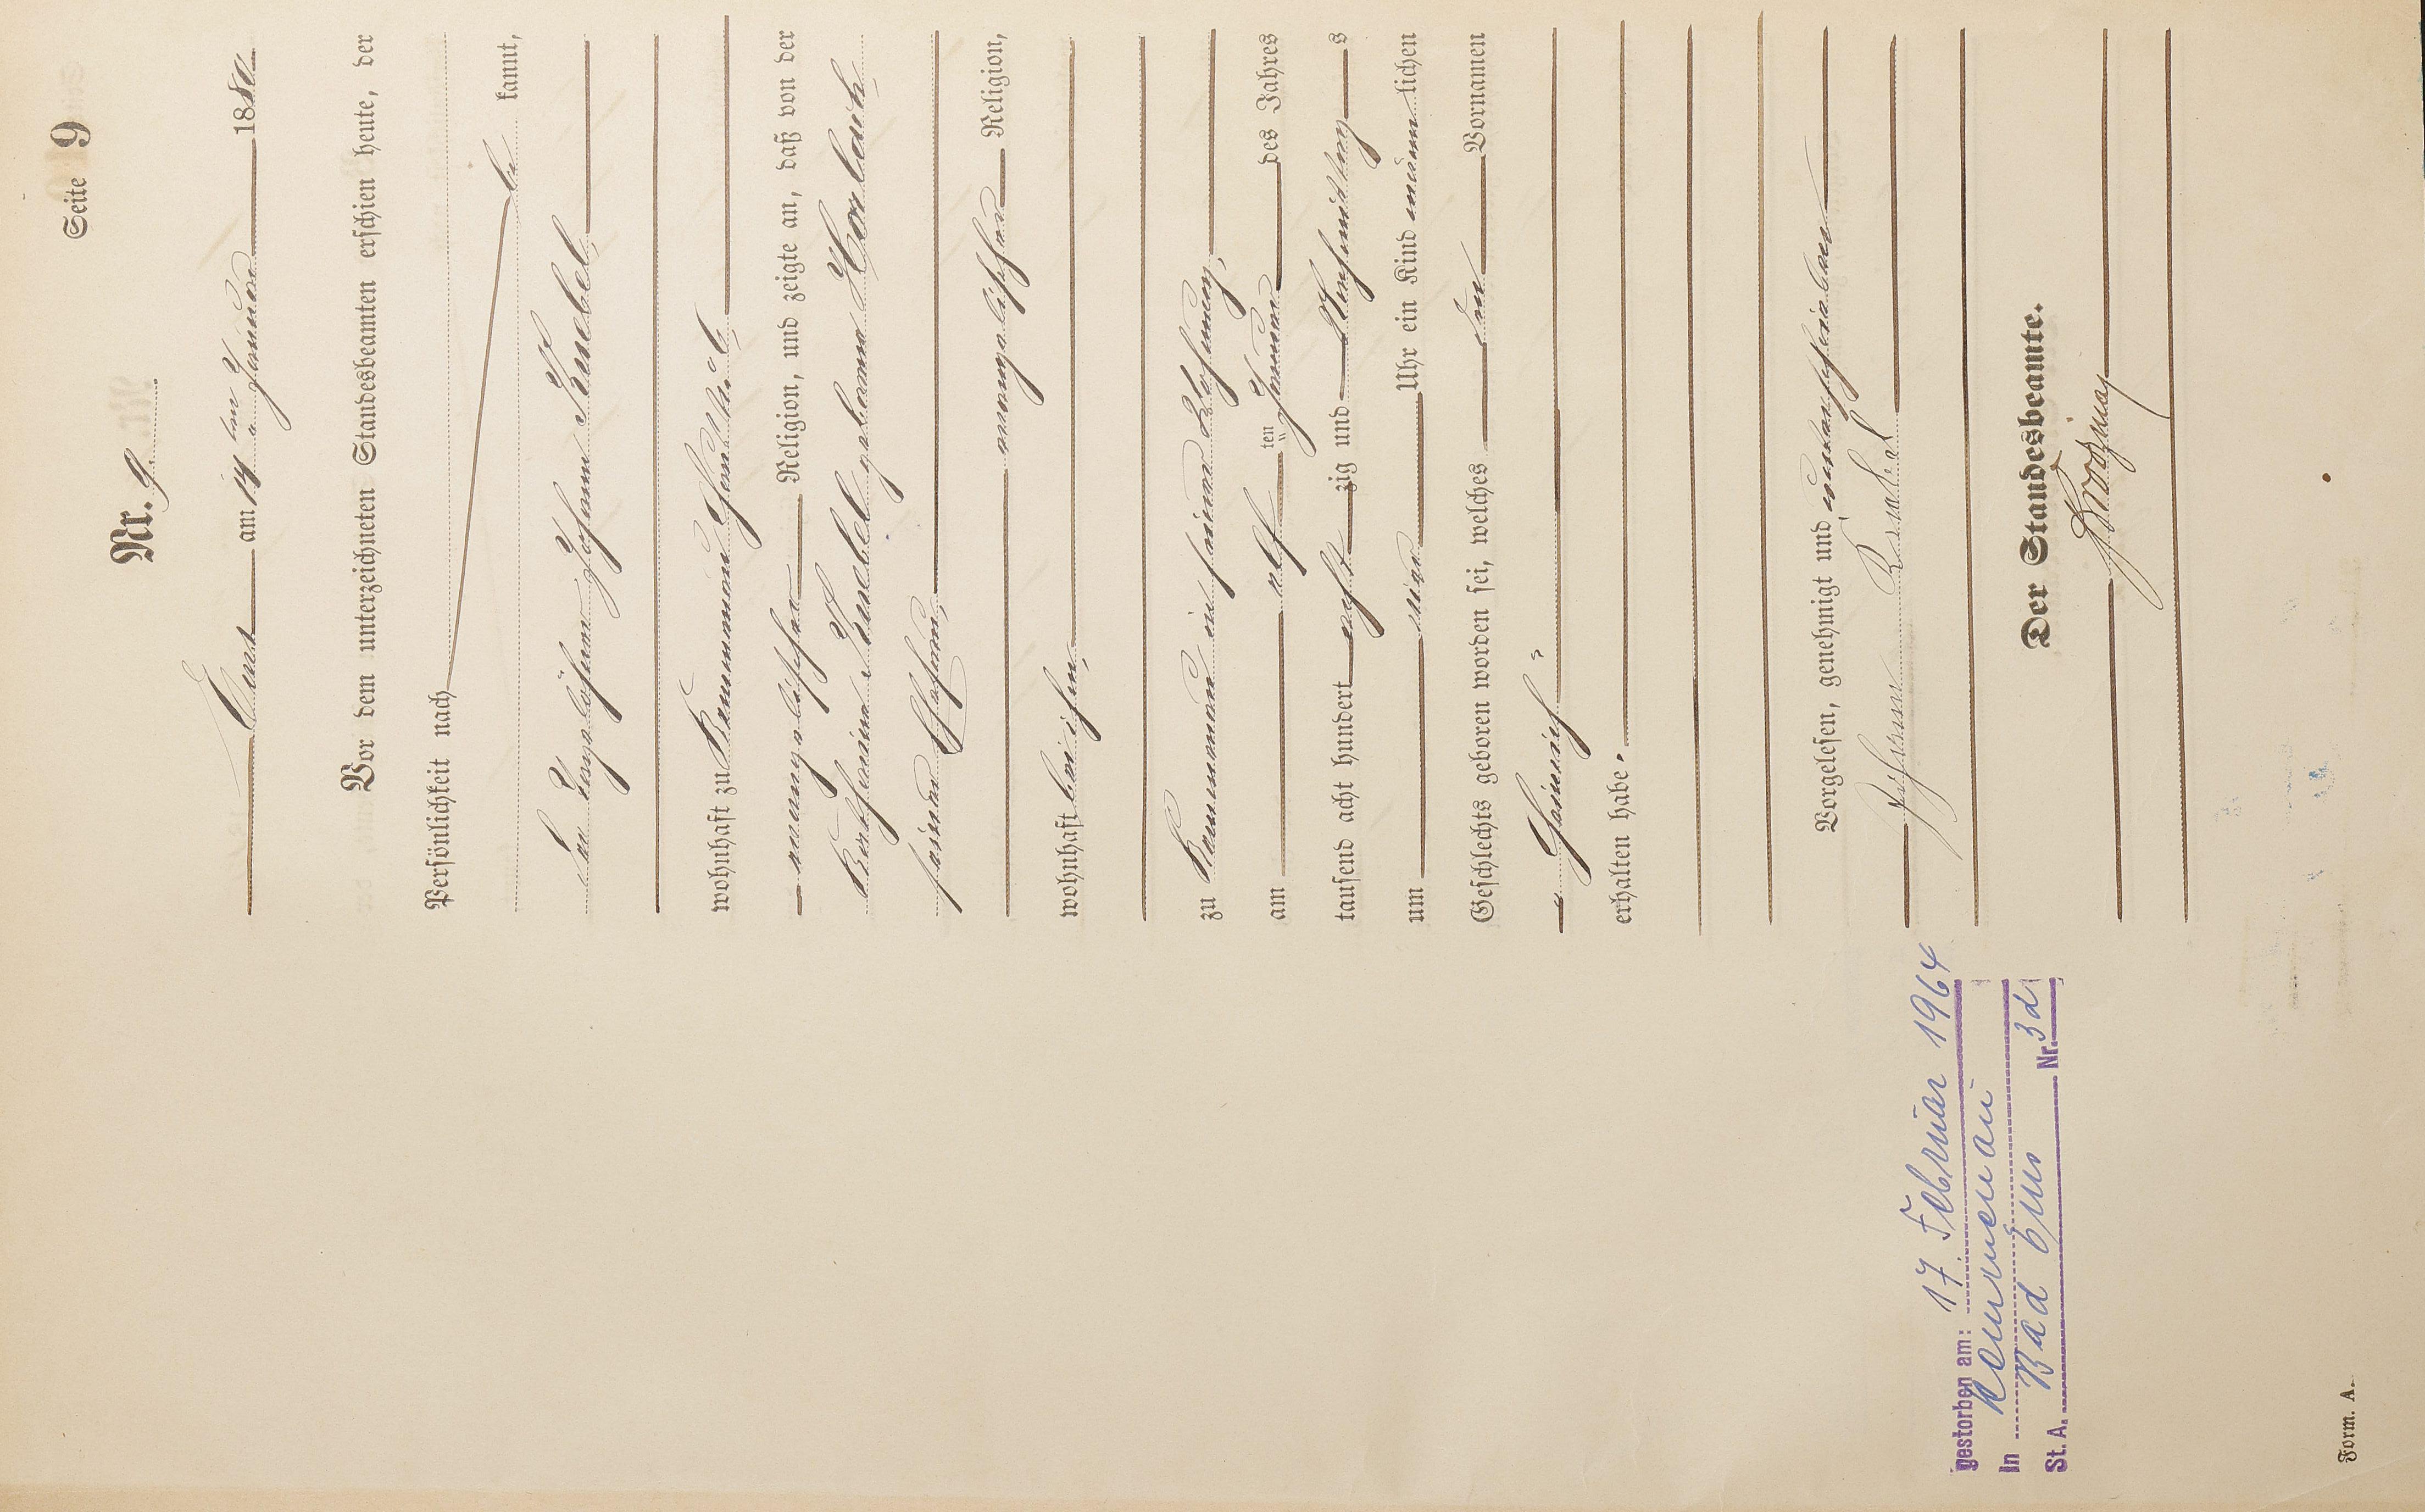 Seite 9
Nr. 9.
Ems am 14ten Januar 1880
Vor dem unterzeichneten Standesbeamten erschien heute, der
Persönlichkeit nach
be kannt,
der Tagelöhner Johann Knebel,
wohnhaft zu Kemmenau
evangelischer Religion, und zeigte an, daß von der
Katharina Knebel geborene
seiner Ehefrau,
evangelischer Religion,
wohnhaft bei ihm,
zu Kemmenau in seiner Wohnung,
am elf ten Januar des Jahres
tausend acht hundert acht zig und Nachmittag s
um vier Uhr ein Kind männ lichen
Geschlechts geboren worden sei, welches den Vornamen
Heinrich
erhalten habe.
Vorgelesen, genehmigt und unterschrieben
Johann Knebel
Der Standesbeamte.
gestorben am: 17. Februar 1964
in Kemmenau
St. A. Bad Ems Nr. 3d
Form. A.